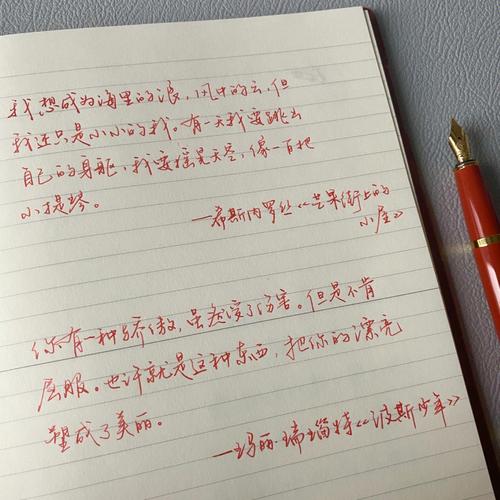 我想成为海里的浪，风中的云，但
我还只是小小的我。有一天我要跳出
自己的身躯，我要摇晃天空，像一百把
小提琴。
—希斯内罗丝《芒果街上的
小屋》
你有一种骄傲，虽然受了伤害。但是不肯
屈服。也许就是这种东西，把你的漂亮
塑成了美丽。
—玛丽·瑞瑙特《波斯少年》